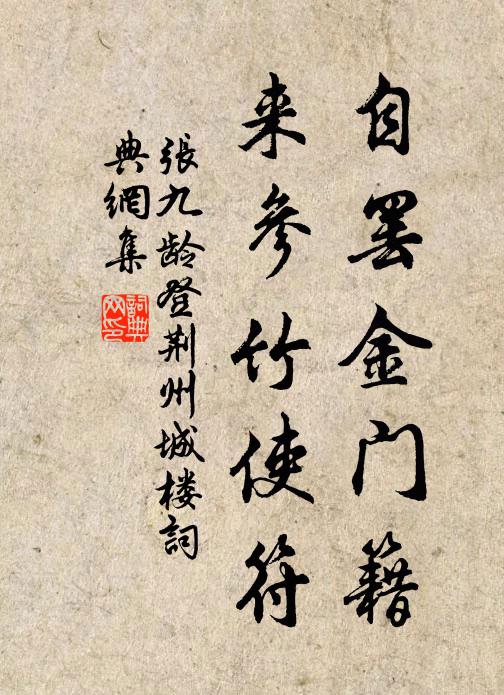 自罢金门籍
来参竹使符
張九龄登荆州城楼詞
典網集
詞典
网印